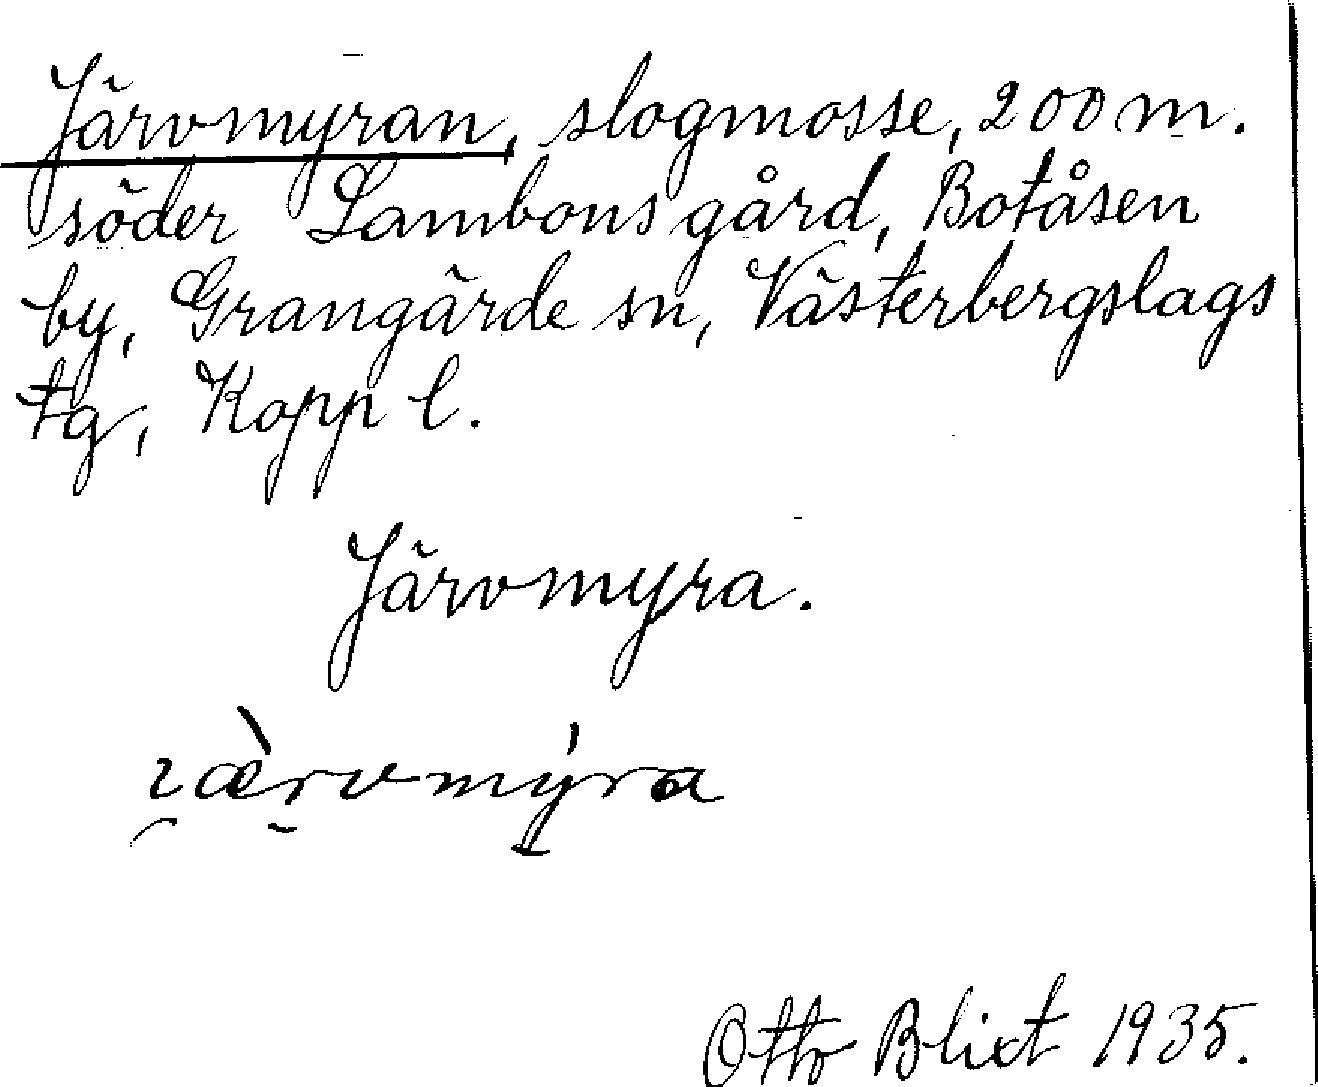 Järvmyran, slogmosse, 200 m.
söder Lambons gård, Botåsen
by, Grangärde sn, Västerbergslags
tg, Kopp l.
Järvmyra.
ɿæ̀rvmýra
Otto Blixt 1935.